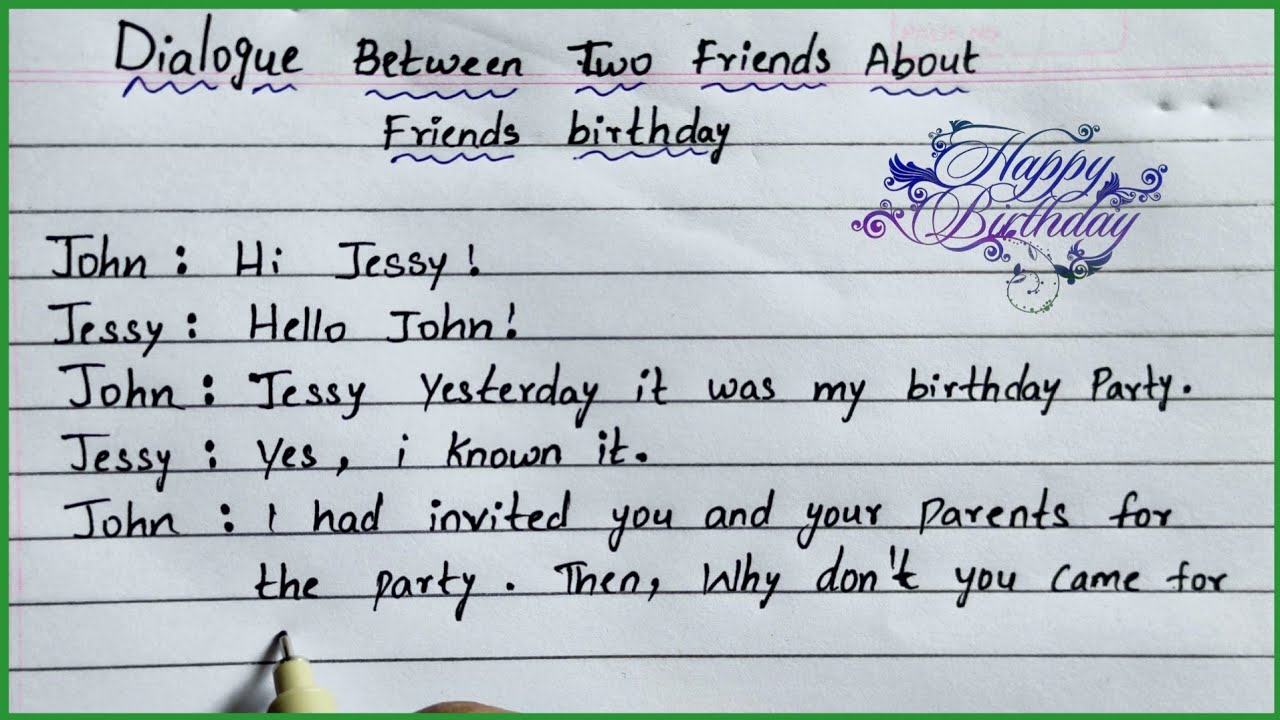 Dialogue Between Two Friends About
Friends birthday
Happy
Birthday
John : Hi Jessy!
Jessy : Hello John!
John : Jessy Yesterday it was my birthday Party.
Jessy : Yes, i known it.
John : I had invited you and your parents for
the party. Then, Why don't you came for